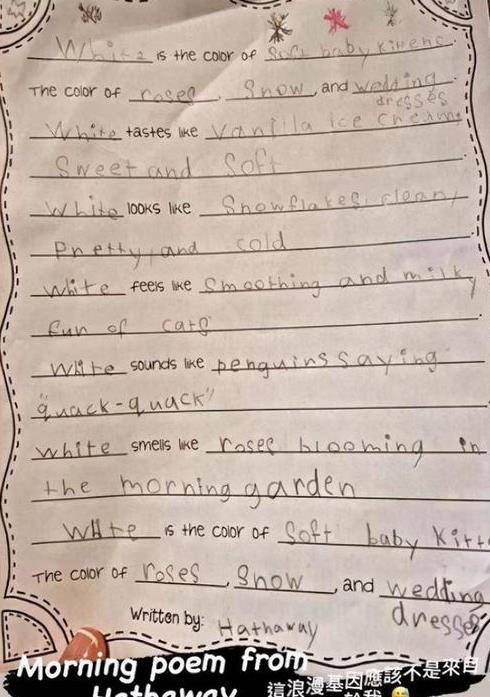 White is the color of Soft baby kittens.
The color of roses, Snow, and wedding
dresses
White tastes like Vanilla ice cream
Sweet and Soft.
White looks like Snowflakes, clean,
Pretty, and cold.
White feels like Smoothing and milky
fun of cats.
White sounds like penguins saying
"quack-quack"
White smells like roses blooming in
the morning garden
White is the color of Soft baby Kitt
The color of roses, Snow, and wedding
dresses
Written by: Hathaway
Morning poem from
Hathaway
這浪漫基因應該不是來自